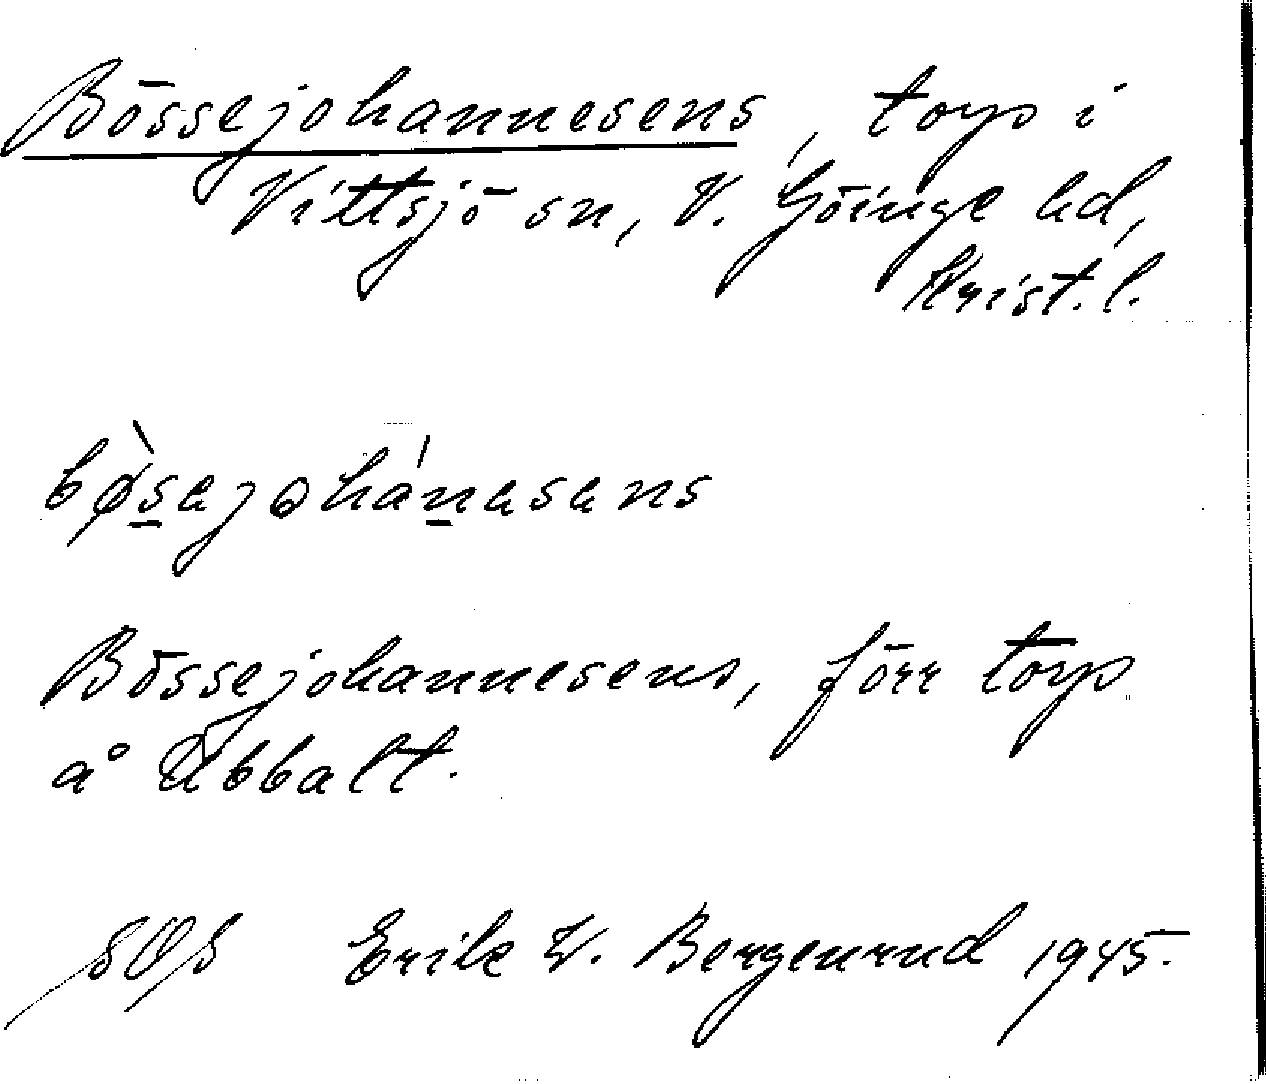 Bössejohannesens, torp i
Vittsjö sn, V. Göinge hd,
Krist. l.
bø̀sejohánesens
Bössejohannesens, förr torp
å Ubbalt.
SOS Erik W. Bergenrud 1945.